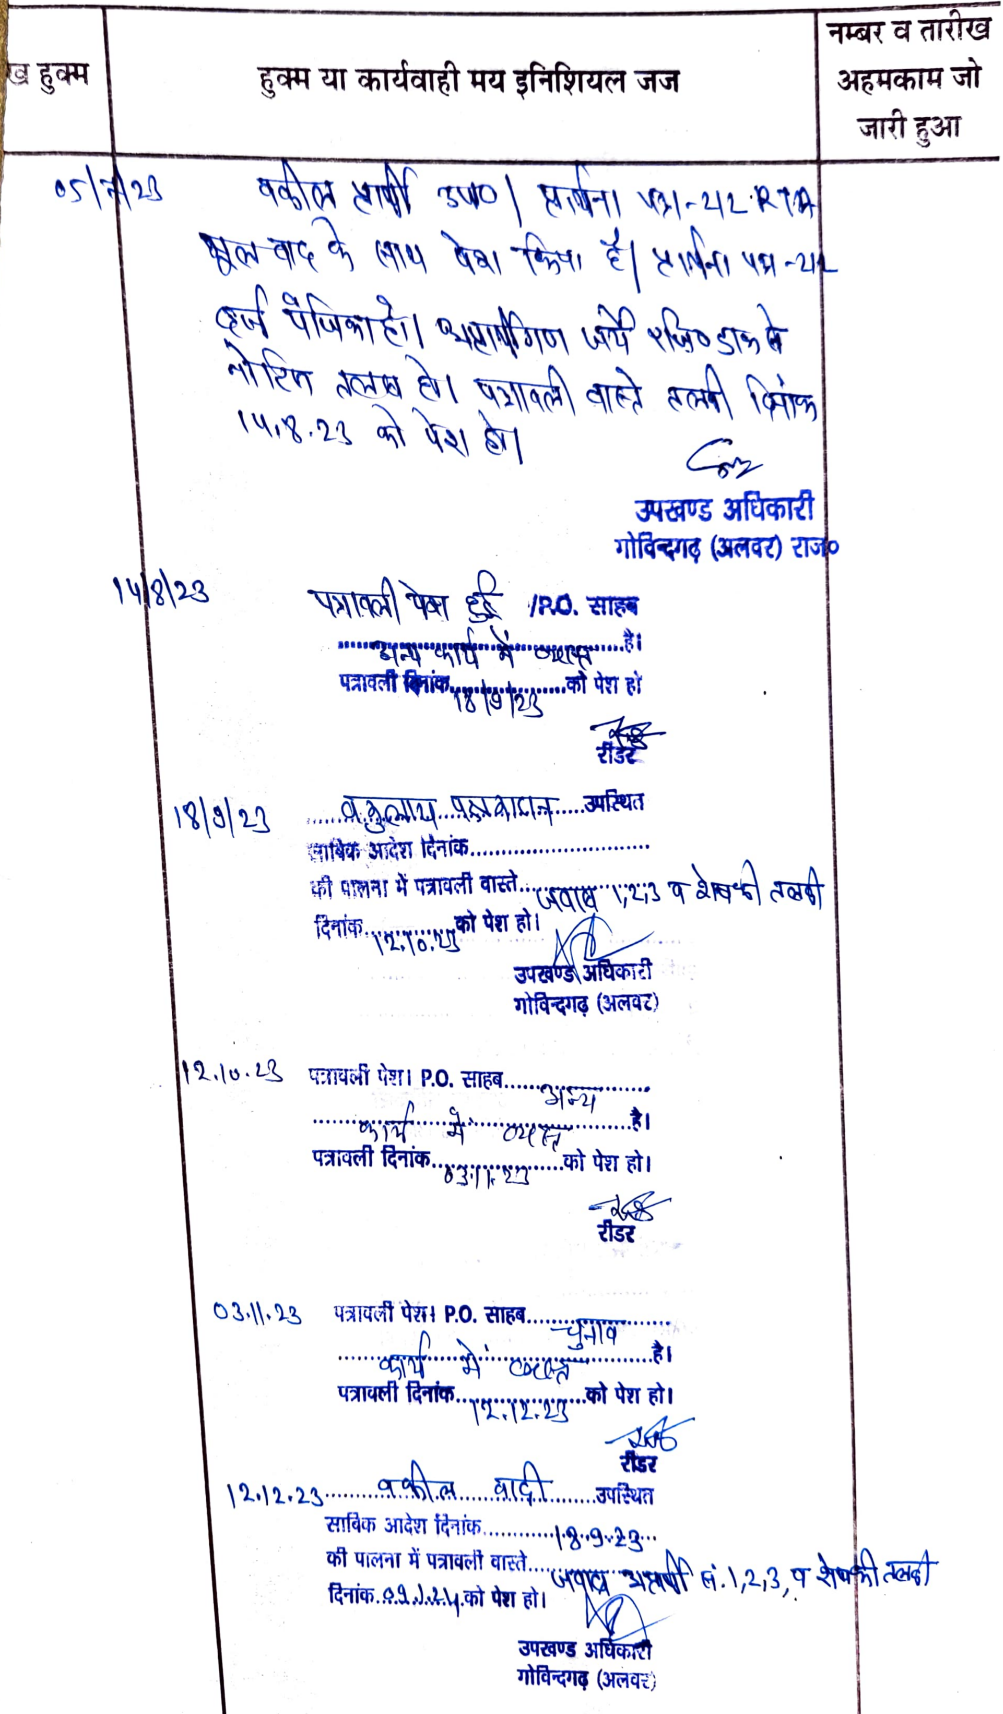 ख हुक्म
हुक्म या कार्यवाही मय इनिशियल जज
नम्बर व तारीख
अहमकाम जो
जारी हुआ
05/7/23 वकील प्रार्थी उप० | प्रार्थना पत्र-212 RTA
मूल वाद के साथ पेश किया है| प्रार्थना पत्र-212
दर्ज पंजिका हो। अप्रार्थीगण जर्ये रजि० डाक से
नोटिस तलब हो। पत्रावली वास्ते तलबी दिनांक
14.8.23 को पेश हो।
उपखण्ड अधिकारी
गोविन्दगढ़ (अलवर) राज०
14/8/23 पत्रावली पेश हुई /P.O. साहब
अन्य कार्य में व्यस्त है।
पत्रावली दिनांक 18/9/23 को पेश हो
रीडर
18/9/23 वकुलाय पक्षकारान उपस्थित
साबिक आदेश दिनांक
की पालना में पत्रावली वास्ते जवाब 1,2,3 व शेष की तलबी
दिनांक 12.10.23 को पेश हो।
उपखण्ड अधिकारी
गोविन्दगढ़ (अलवर)
12.10.23 पत्रावली पेश। P.O. साहब अन्य
कार्य में व्यस्त है।
पत्रावली दिनांक 03.11.23 को पेश हो।
रीडर
03.11.23 पत्रावली पेश। P.O. साहब चुनाव
कार्य में व्यस्त है।
पत्रावली दिनांक 12.12.23 को पेश हो।
रीडर
12.12.23 वकील वादी उपस्थित
साबिक आदेश दिनांक 18.9.23
की पालना में पत्रावली वास्ते जवाब अप्रार्थी सं. 1,2,3, व शेष की तलबी
दिनांक 09.1.24 को पेश हो।
उपखण्ड अधिकारी
गोविन्दगढ़ (अलवर)